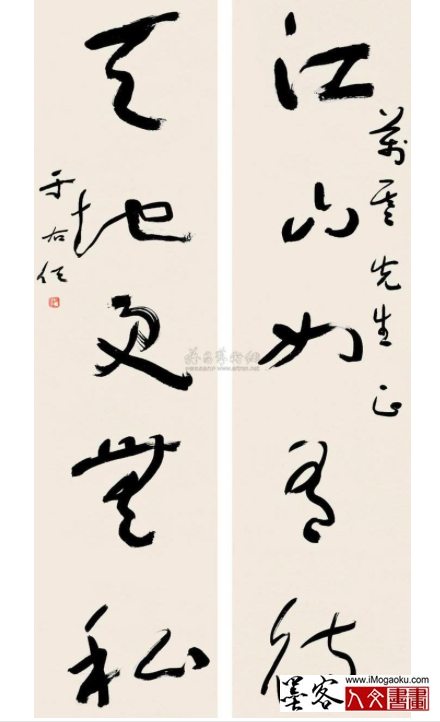 江山如有待
萬云先生正
天地更無私
于右任
www.iMogaoku.com
墨客
人文書畫